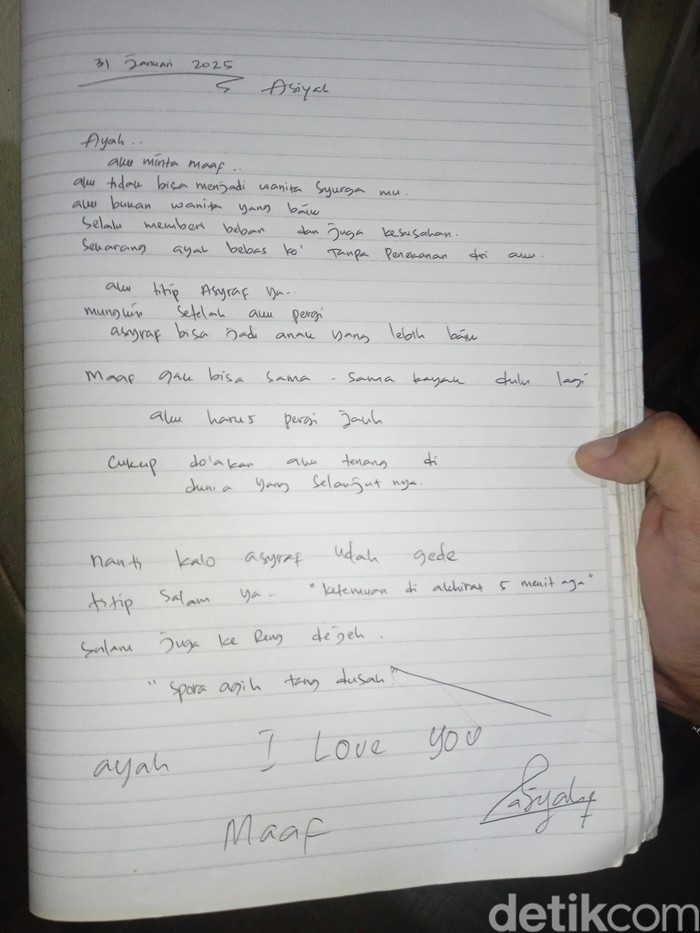 31 Januari 2025
Asiyah
Ayah..
aku minta maaf..
aku tidak bisa menjadi wanita syurga mu.
aku bukan wanita yang baik
Selalu memberi beban dan juga kesusahan.
Sekarang ayah bebas ko' Tanpa Penekanan dri aku.
aku titip Asyraf ya..
mungkin setelah aku pergi
asyraf bisa jadi anak yang lebih baik
Maaf gak bisa sama - sama kayak dulu lagi
aku harus pergi jauh
Cukup do'akan aku tenang di
dunia yang selanjutnya.
nanti kalo asyraf udah gede
titip salam ya. "ketemuan di akhirat 5 menit aja"
Salam juga ke Reng dejeh.
"Spora agih tang dusah"
ayah I Love you
Maaf
detikcom